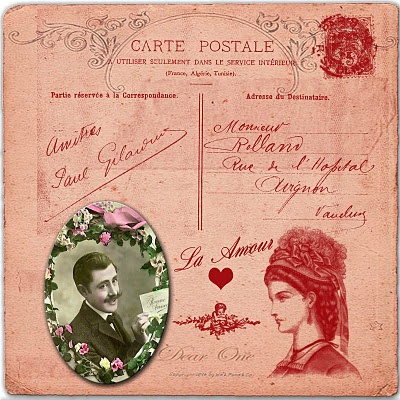 CARTE POSTALE
A UTILISER SEULEMENT DANS LE SERVICE INTÉRIEUR
(France, Algérie, Tunisie).
Partie réservée à la Correspondance.
Adresse du Destinataire.
Amitiés
Paul
Monsieur
Rolland
Rue de l'Hopital
Avignon
Vaucluse
La Amour
Dear One